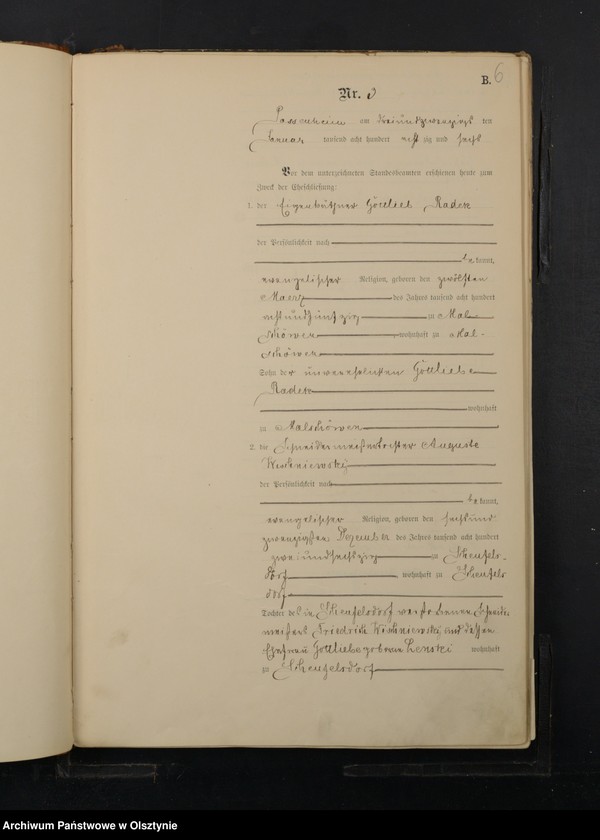 B. 6
Nr. 3
Passenheim am dreiundzwanzigsten
Januar tausend acht hundert achtzig und sechs
Vor dem unterzeichneten Standesbeamten erschienen heute zum
Zweck der Eheschließung:
1. der Eigenkäthner Gottlieb
der Persönlichkeit nach
be kannt,
evangelischer Religion, geboren den zwölften
Maerz des Jahres tausend acht hundert
achtundfünfzig zu Mal-
schöwen, wohnhaft zu Mal-
schöwen
Sohn der unverehelichten Gottliebe
wohnhaft
zu Malschöwen
2. die Schneidermeistertochter Auguste
der Persönlichkeit nach
be kannt,
evangelischer Religion, geboren den sechsund
zwanzigsten Dezember des Jahres tausend acht hundert
zweiundsechszig zu Scheufels-
dorf wohnhaft zu Scheufels
dorf
Tochter des in Scheufelsdorf verstorbenen Schneider
meisters Friedrich und dessen
Ehefrau Gottliebe geborene Lenski wohnhaft
zu Scheufelsdorf
Archiwum Państwowe w Olsztynie